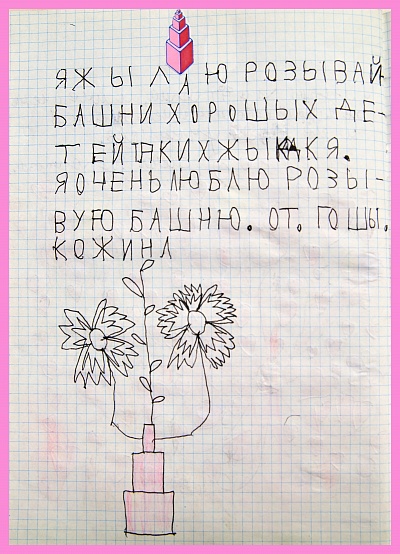 ЯЖЫЛАЮ РОЗЫВАЙ
БАШНИ ХОРОШЫХ ДЕ-
ТЕЙ ТАКИХЖЫ КАК Я.
Я ОЧЕНЬ ЛЮБЛЮ РОЗЫ-
ВУЮ БАШНЮ. ОТ. ГОШЫ.
КОЖИНА